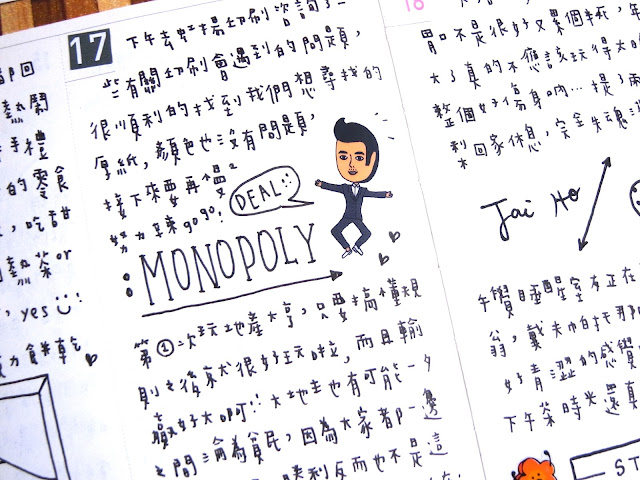 17
下午去虹揚印刷諮詢了一
些有關印刷會遇到的問題,
很順利的找到我們想尋找的
厚紙,顏色也沒有問題,
接下來要再慢²
努力辣gogo!
DEAL!!
MONOPOLY
第①次玩地產大亨,只要搞懂規
則之後來犬很好玩啦,而且輸
贏好大啊!! 大地主也有可能一夕
之間淪為貧民,因為大家都一邊
勝利反而也不是這
都回
熱鬧
手禮
的零食
,吃甜
熱茶or
, yes
力食米乾
18
胃口不是很好又累個半死,年
大了真的不應該玩得太
整個好傷身吶…提了兩
回家休息,完全失魂
Jai Ho
午覺睡醒室友正在
翁,戴夫帕托那
好青澀的感覺
下午茶時光還真
ST